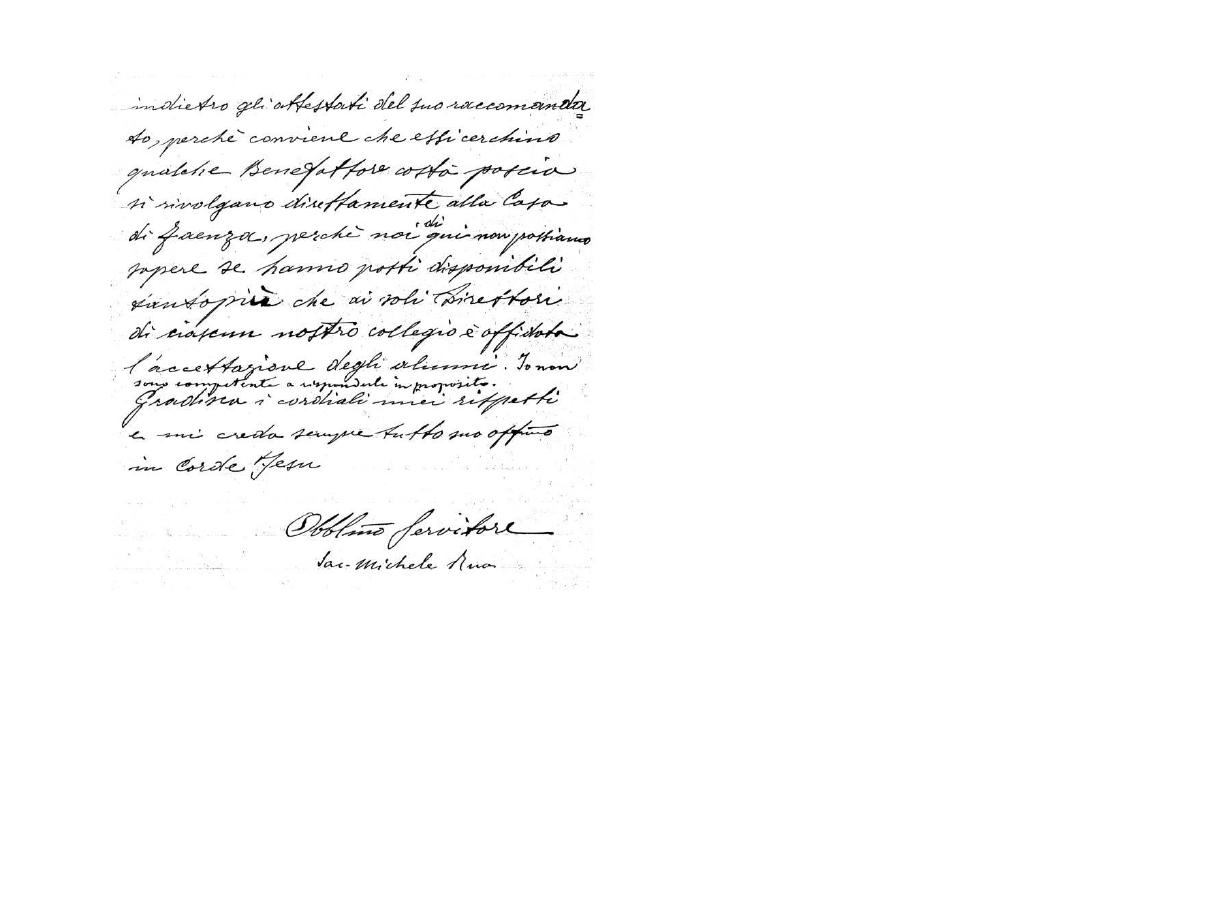 indietro gli attestati del suo raccomanda
to, perchè conviene che essi cerchino
qualche Benefattore costà poscia
si rivolgano direttamente alla Casa
di Faenza, perchè noi di qui non possiamo
sapere se hanno posti disponibili
tantopiù che ai soli Direttori
di ciascun nostro collegio è affidata
l'accettazione degli alunni. Io non
sono competente a risponderle in proposito.
Gradisca i cordiali miei rispetti
e mi creda sempre tutto suo affmo
in Corde Jesu
Obblmo Servitore
Sac. Michele Rua